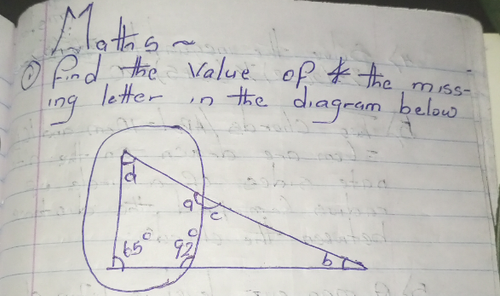 Maths ~
① find the value of the miss-
ing letter in the diagram below
d
a
c
65° 92° b